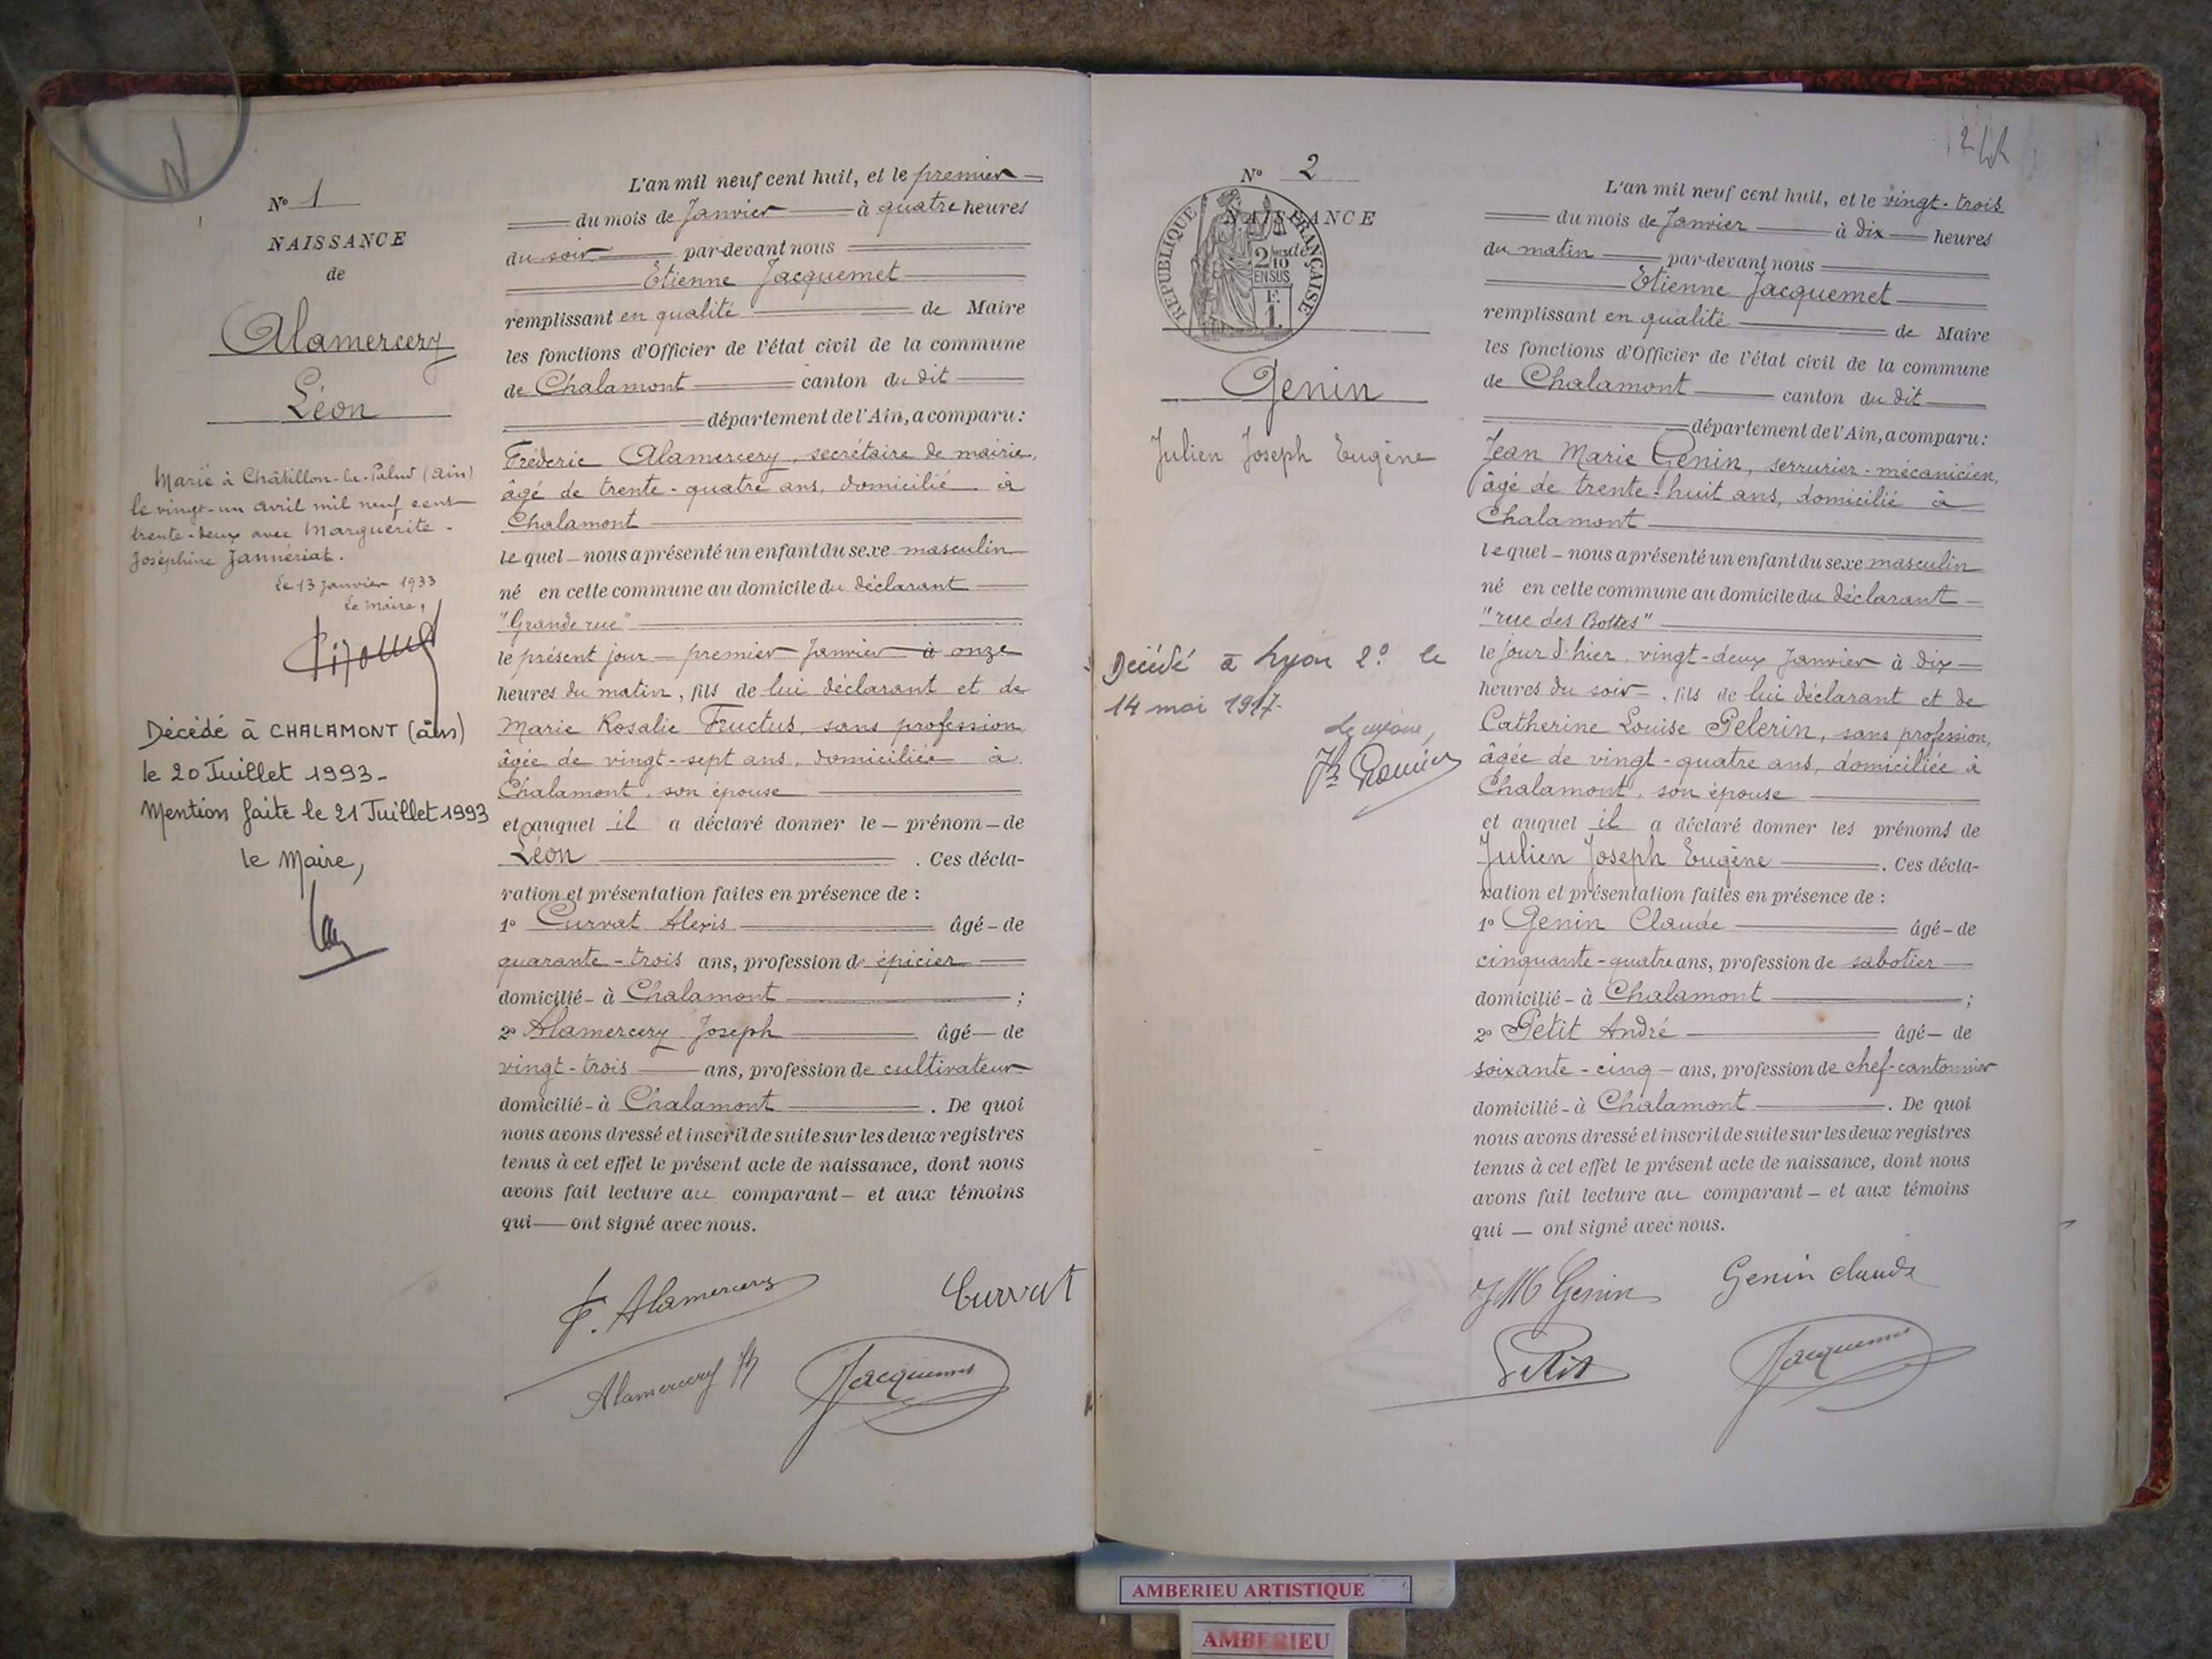 N° 1
NAISSANCE
de
Alamercery
Léon
Marié à Châtillon-la-Palud (Ain)
le vingt-un avril mil neuf cent
trente-deux avec Marguerite-
Joséphine Jannériat.
Le 13 Janvier 1933
Le Maire,
Décédé à CHALAMONT (Ain)
le 20 Juillet 1993-
Mention faite le 21 Juillet 1993
le Maire,
L'an mil neuf cent huit, et le premier
du mois de Janvier à quatre heures
du soir par-devant nous
Etienne Jacquemet
remplissant en qualité de Maire
les fonctions d'Officier de l'état civil de la commune
de Chalamont canton du dit
département de l'Ain, a comparu :
Fréderic Alamercery, secrétaire de mairie,
âgé de trente-quatre ans, domicilié à
Chalamont
lequel nous a présenté un enfant du sexe masculin
né en cette commune au domicile du déclarant
"Grande rue"
le présent jour premier Janvier à onze
heures du matin, fils de lui déclarant et de
Marie Rosalie Fructus, sans profession,
âgée de vingt-sept ans, domiciliée à
Chalamont, son épouse
et auquel il a déclaré donner le prénom de
Léon . Ces décla-
ration et présentation faites en présence de :
1° Curvat Alexis âgé de
quarante-trois ans, profession de épicier
domicilié à Chalamont ;
2° Alamercery Joseph âgé de
vingt-trois ans, profession de cultivateur
domicilié à Chalamont . De quoi
nous avons dressé et inscrit de suite sur les deux registres
tenus à cet effet le présent acte de naissance, dont nous
avons fait lecture au comparant et aux témoins
qui ont signé avec nous.
F. Alamercery Curvat
Alamercery Jh Jacquemet
244
N° 2
NAISSANCE
de
REPUBLIQUE FRANÇAISE
2/10
EN SUS
F.
1.
Genin
Julien Joseph Eugène
Décédé à Lyon 2° le
14 mai 1917.
Le Maire,
L'an mil neuf cent huit, et le vingt-trois
du mois de Janvier à dix heures
du matin par-devant nous
Etienne Jacquemet
remplissant en qualité de Maire
les fonctions d'Officier de l'état civil de la commune
de Chalamont canton du dit
département de l'Ain, a comparu :
Jean Marie Genin, serrurier-mécanicien,
âgé de trente-huit ans, domicilié à
Chalamont
lequel nous a présenté un enfant du sexe masculin
né en cette commune au domicile du déclarant
"rue des Bottes"
le jour d'hier, vingt-deux Janvier à dix
heures du soir, fils de lui déclarant et de
Catherine Louise Pelerin, sans profession,
âgée de vingt-quatre ans, domiciliée à
Chalamont, son épouse
et auquel il a déclaré donner les prénoms de
Julien Joseph Eugène . Ces décla-
ration et présentation faites en présence de :
1° Genin Claude âgé de
cinquante-quatre ans, profession de sabotier
domicilié à Chalamont ;
2° Petit André âgé de
soixante-cinq ans, profession de chef-cantonnier
domicilié à Chalamont . De quoi
nous avons dressé et inscrit de suite sur les deux registres
tenus à cet effet le présent acte de naissance, dont nous
avons fait lecture au comparant et aux témoins
qui ont signé avec nous.
JM Genin Genin claude
Petit Jacquemet
AMBERIEU ARTISTIQUE
AMBERIEU